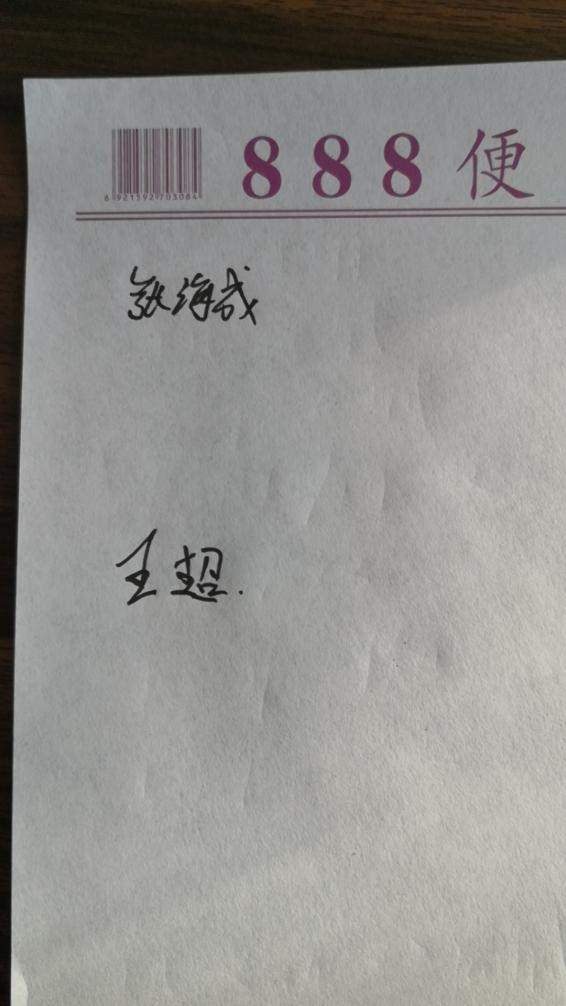 6 921592 703084
888便
张海成
王超.